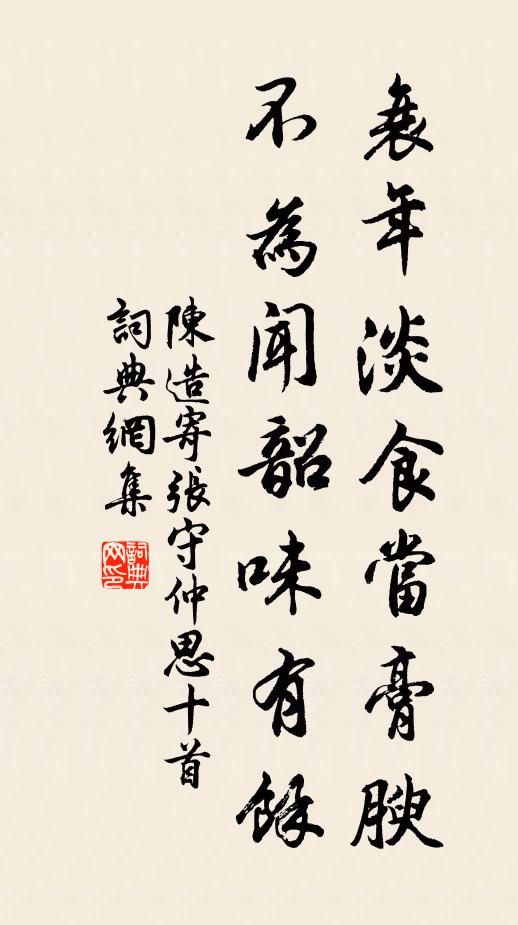 衰年淡食當膏腴
不為聞韶味有餘
陳造寄張守仲思十首
詞典網集
詞典网印